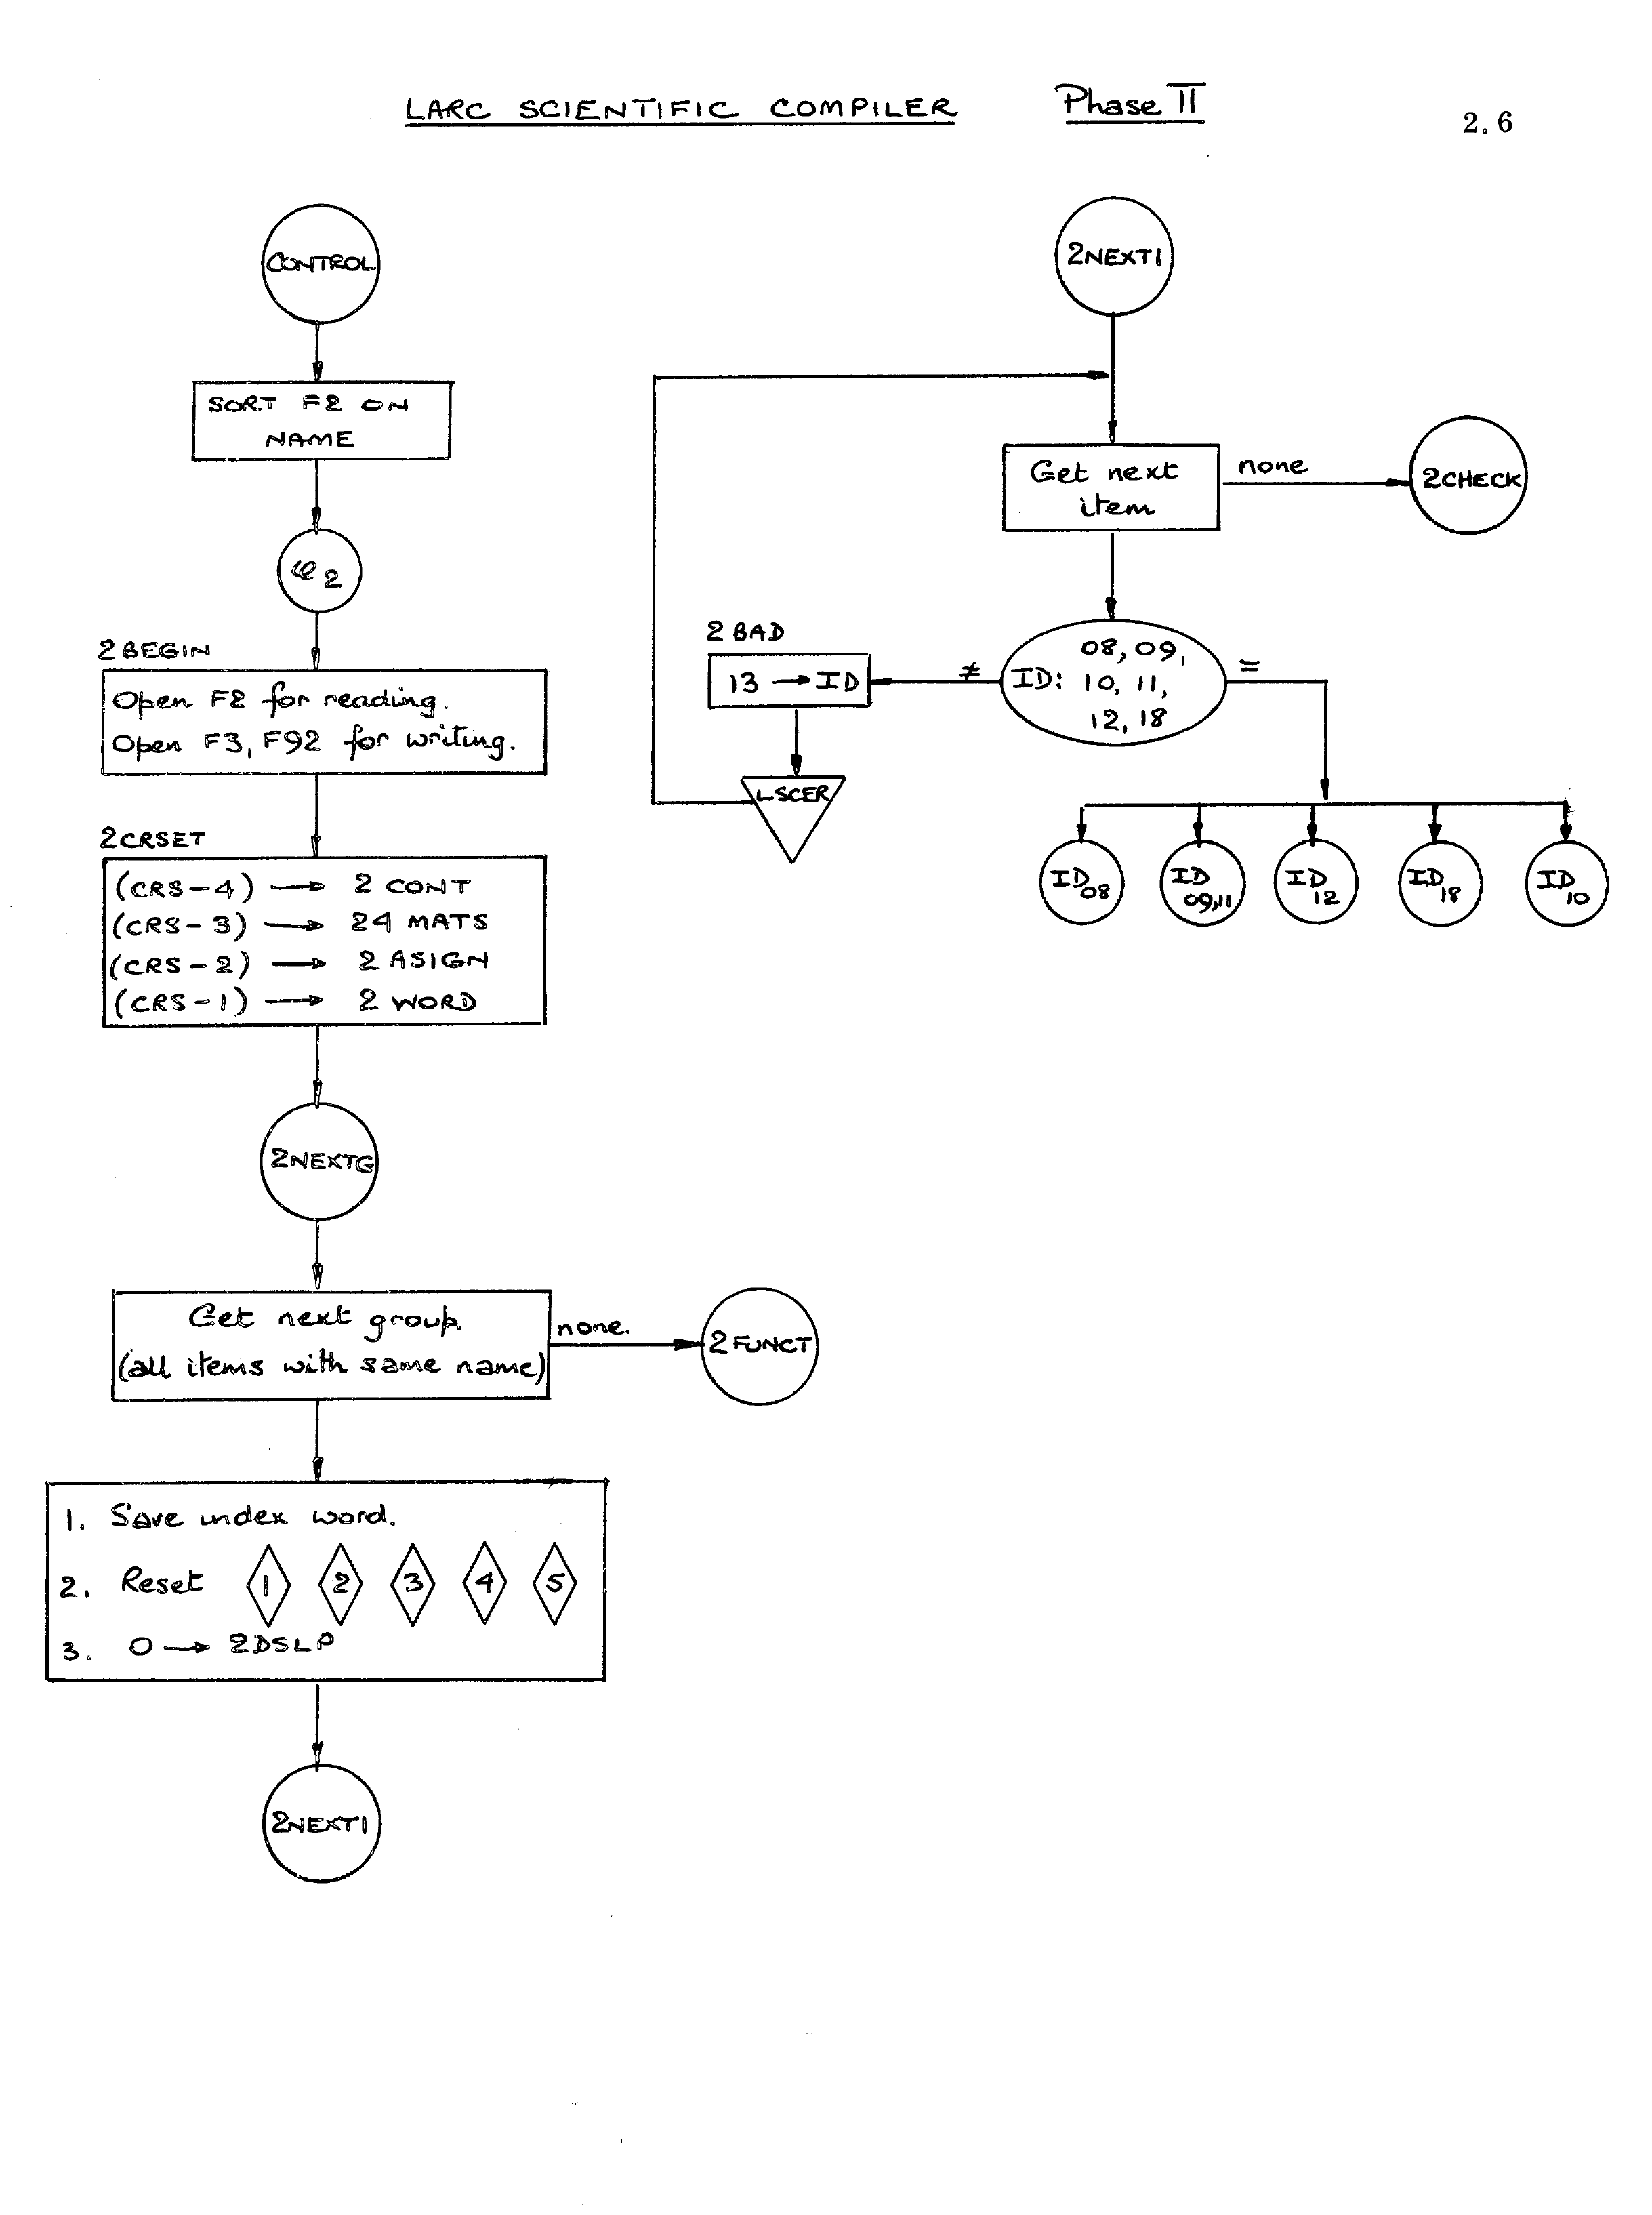 LARC SCIENTIFIC COMPILER Phase II
2.6
CONTROL
SORT F2 ON
NAME
φ2
2BEGIN
Open F2 for reading.
Open F3, F92 for writing.
2CRSET
(CRS-4) → 2 CONT
(CRS-3) → 24 MATS
(CRS-2) → 2 ASIGN
(CRS-1) → 2 WORD
2NEXTG
Get next group.
(all items with same name)
none.
2 FUNCT
1. Save index word.
2. Reset 1 2 3 4 5
3. 0 → 2DSLP
2NEXTI
2NEXTI
Get next
item
none
2CHECK
08, 09,
ID: 10, 11,
12, 18
≠
=
2 BAD
13 → ID
LSCER
ID08
ID
09,11
ID12
ID18
ID10